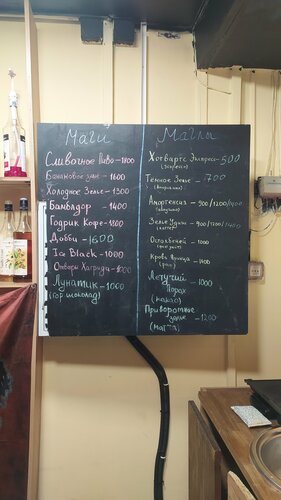 Маги
Сливочное Пиво - 1800
Банановое зелье - 1600
Холодное Зелье - 1300
Бамблдор - 1400
Годрик Кофе - 1300
Добби - 1600
Ice Black - 1000
Отвары Хагрида - 1000
Лунатик - 1000
(гор шоколад)
Маглы
Хогвартс Экспресс - 500
(эспрессо)
Темное Зелье - 700
(американо)
Амортенсия - 900/1200/1400
Зелье Удачи - 900/1200/1400
(латте)
- 1000
Кровь Единорога - 1400
(раф)
Летучий - 1000
Порох
(какао)
Приворотное
зелье - 1200